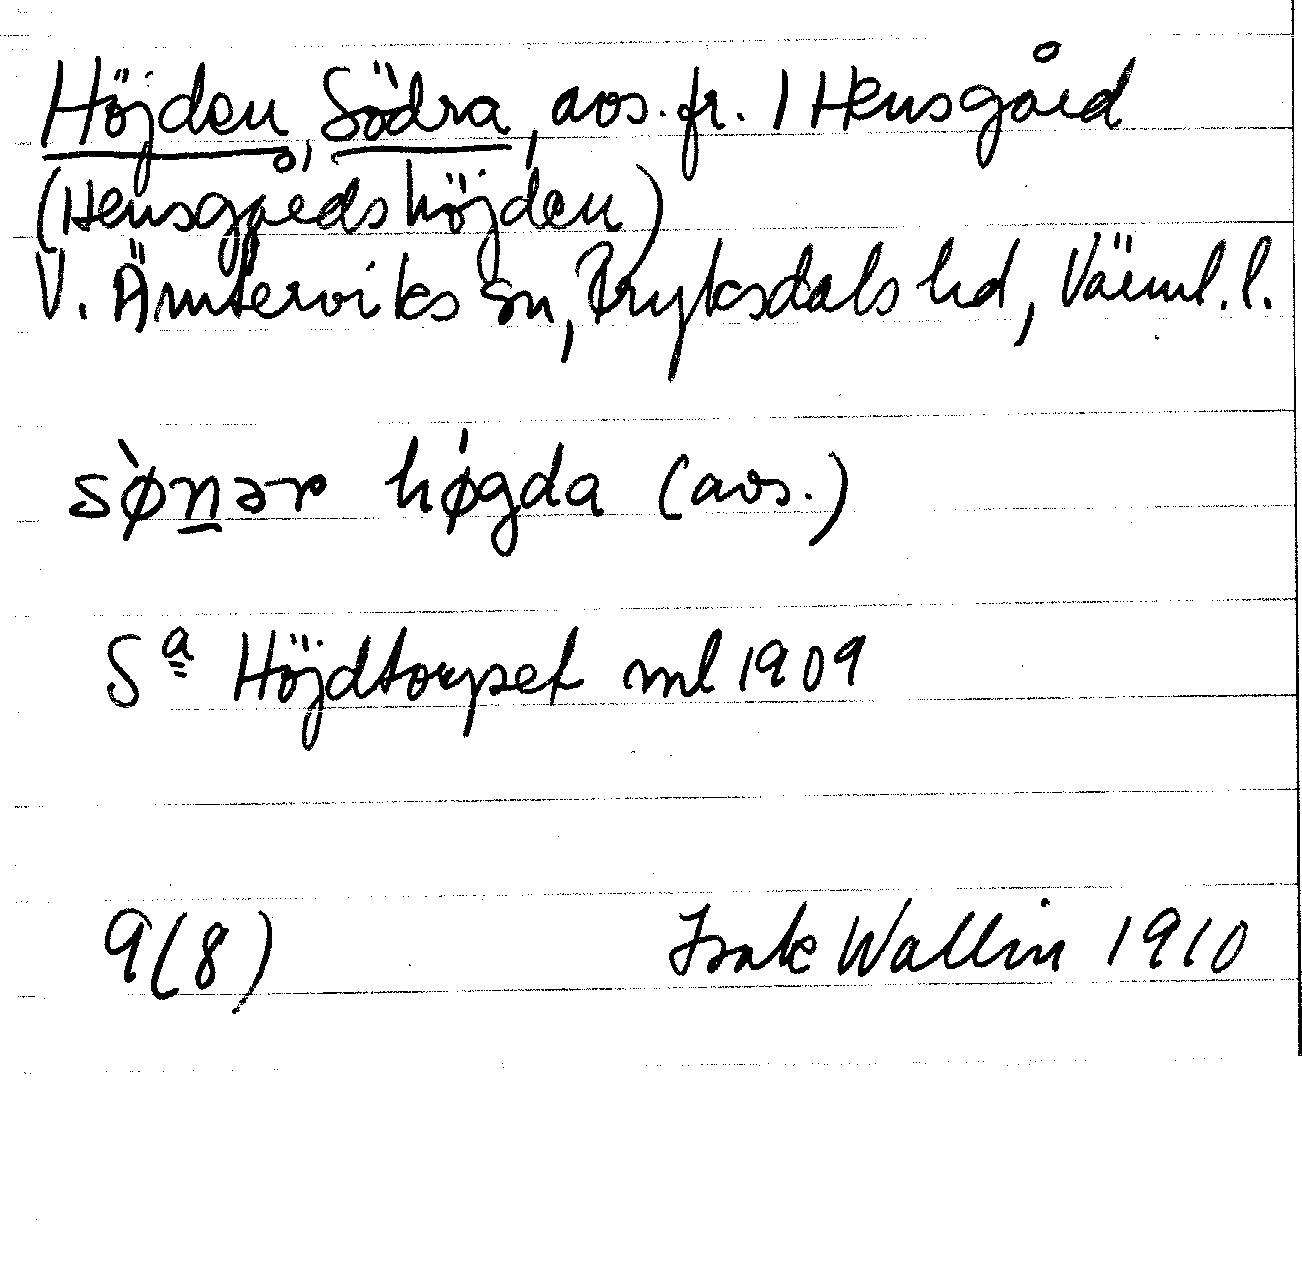 Höjden, Södra, avs. fr. 1 Hensgård
(Hensgårdshöjden)
V. Ämterviks sn, Fryksdals hd, Värml. l.
sø̀nər høgda (avs.)
Sᵃ Höjdtorpet ml 1909
9(8) Isak Wallin 1910